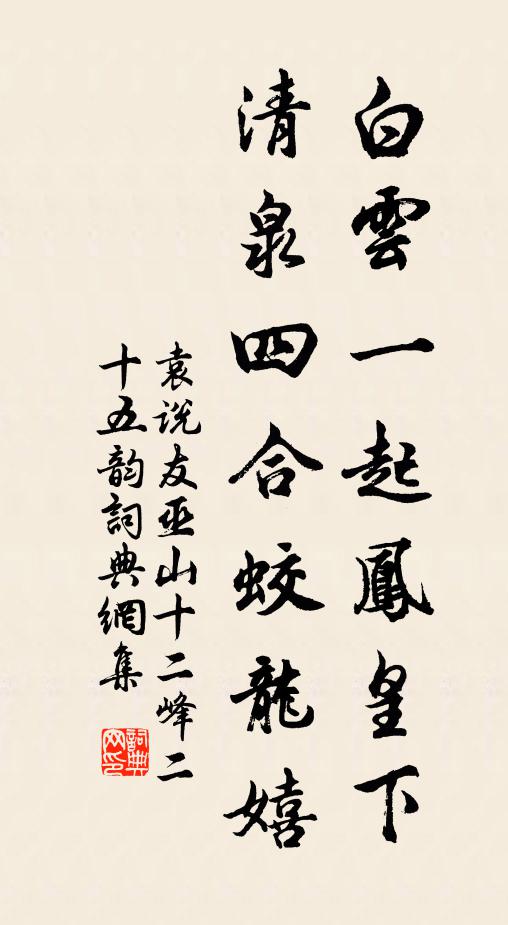 白雲一起鳳皇下
清泉四合蛟龍嬉
袁說友巫山十二峰二
十五韵詞典網集
詞典网印